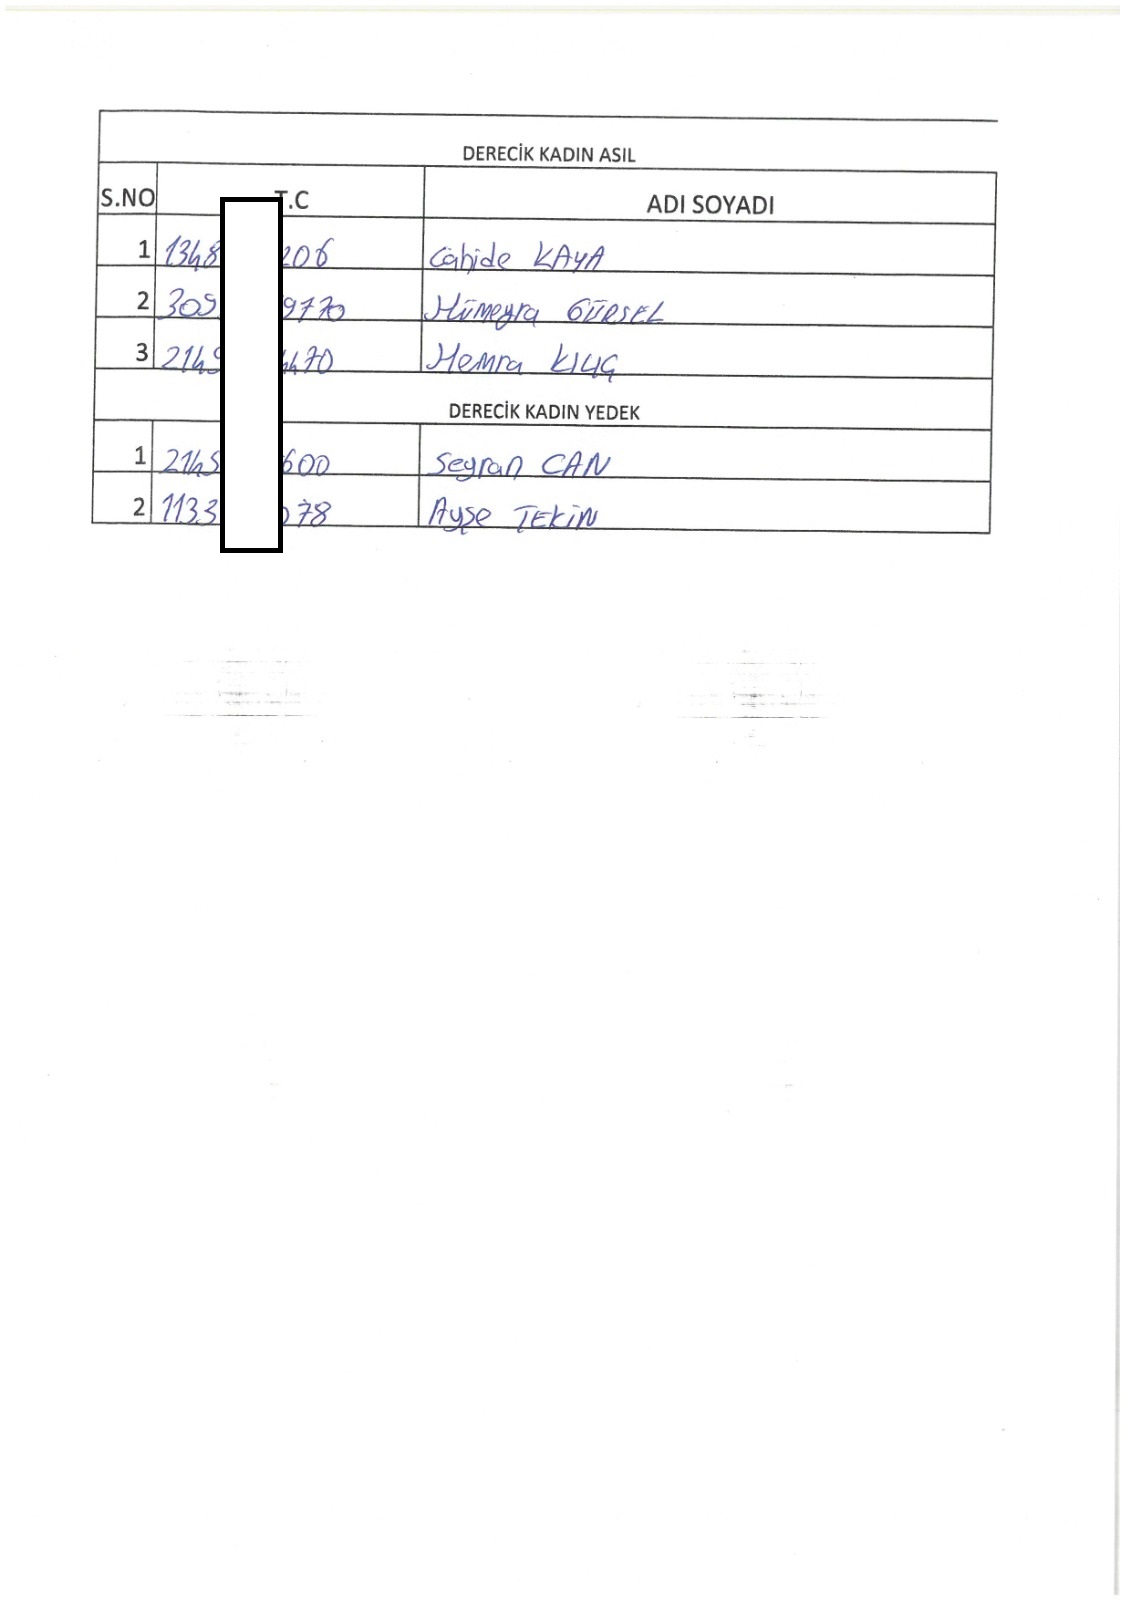 DERECİK KADIN ASIL
S.NO T.C ADI SOYADI
1 1348 206 Cahide KAYA
2 309 9770 Hümeyra GÜRSEL
3 2149 4470 Hemra KILIÇ
DERECİK KADIN YEDEK
1 2145 600 Seyran CAN
2 1133 078 Ayşe TEKİN